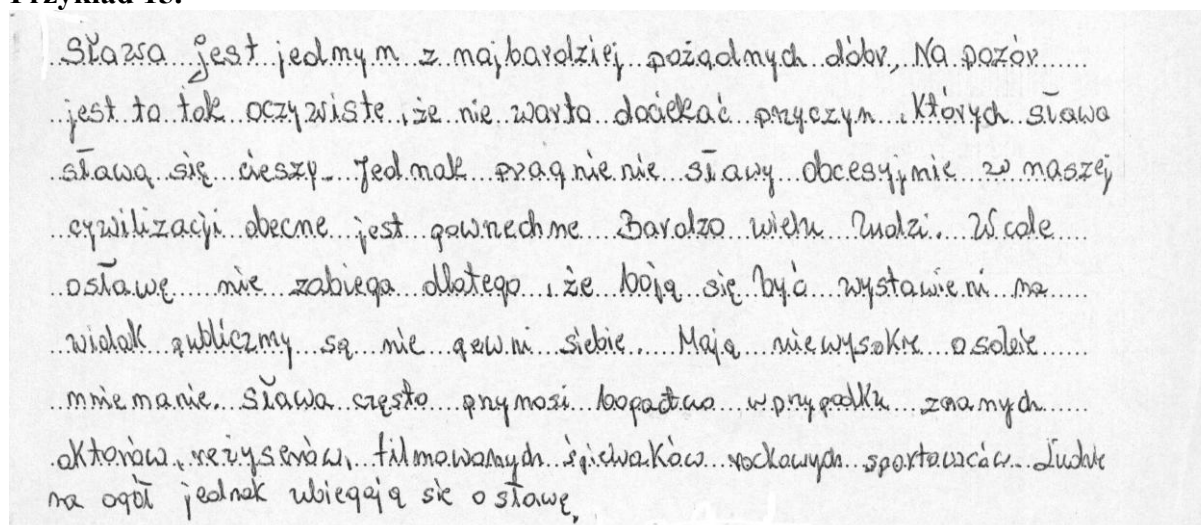 Przykład 13.
Sława jest jednym z najbardziej pożądnych dóbr, Na pozór
jest to tak oczywiste, że nie warto dociekać pryczyn, których sława
sławą się cieszy. Jednak pragnienie sławy obcesyjnie w naszej
cywilizacji obecne jest pownechne Bardzo wielu ludzi. Wcale
osławę nie zabiega dlatego, że boją się być wystawieni na
widok publiczny są nie pewni siebie. Mają niewysokie osobie
mniemanie. Sława często pnynosi bogactwo wprypadku znanych
aktorów, reżyserów, filmowanych śpiewaków rockowych sportowców. Ludzie
na ogół jednak ubiegają się o sławę.